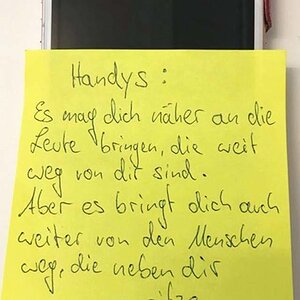 Handys:
Es mag dich näher an die
Leute bringen, die weit
weg von dir sind.
Aber es bringt dich auch
weiter von den Menschen
weg, die neben dir